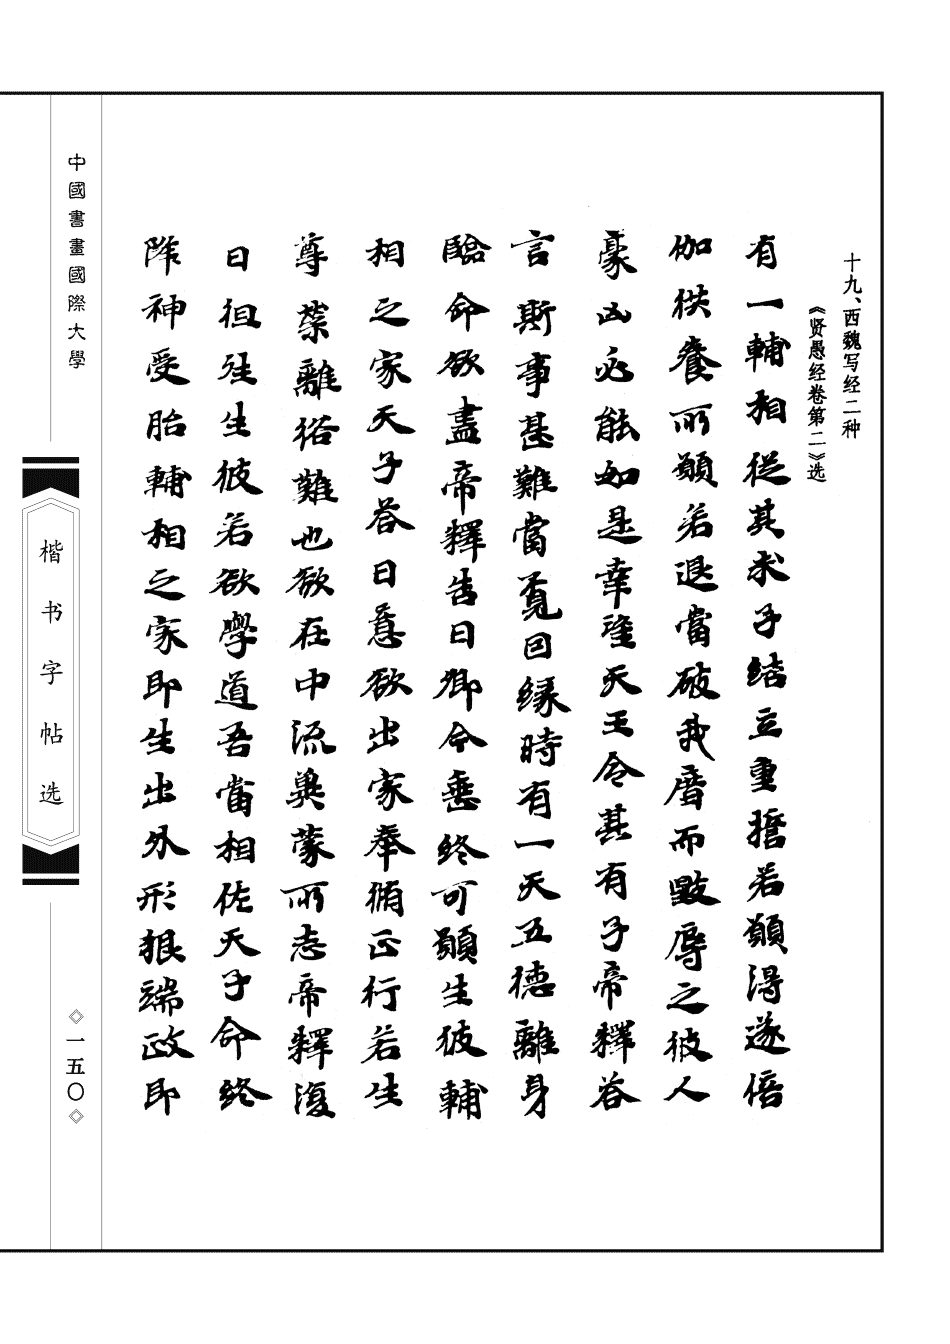 十九、西魏写经二种
《贤愚经卷第二》选
有一輔相従其求子結立重擔若願得遂倍
伽供養所願若退當破我廇而毀辱之彼人
豪凶必能如是幸望天王令其有子帝釋答
言斯事甚難當覓因緣時有一天五德離身
臨命欲盡帝釋告曰卿今垂終可願生彼輔
相之家天子答曰意欲出家奉脩正行若生
尊榮離俗難也欲在中流冀蒙所志帝釋復
曰徃生彼若欲學道吾當相佐天子命終
降神受胎輔相之家即生出外形貌端政即
中國書畫國際大學
楷书字帖选
一五〇